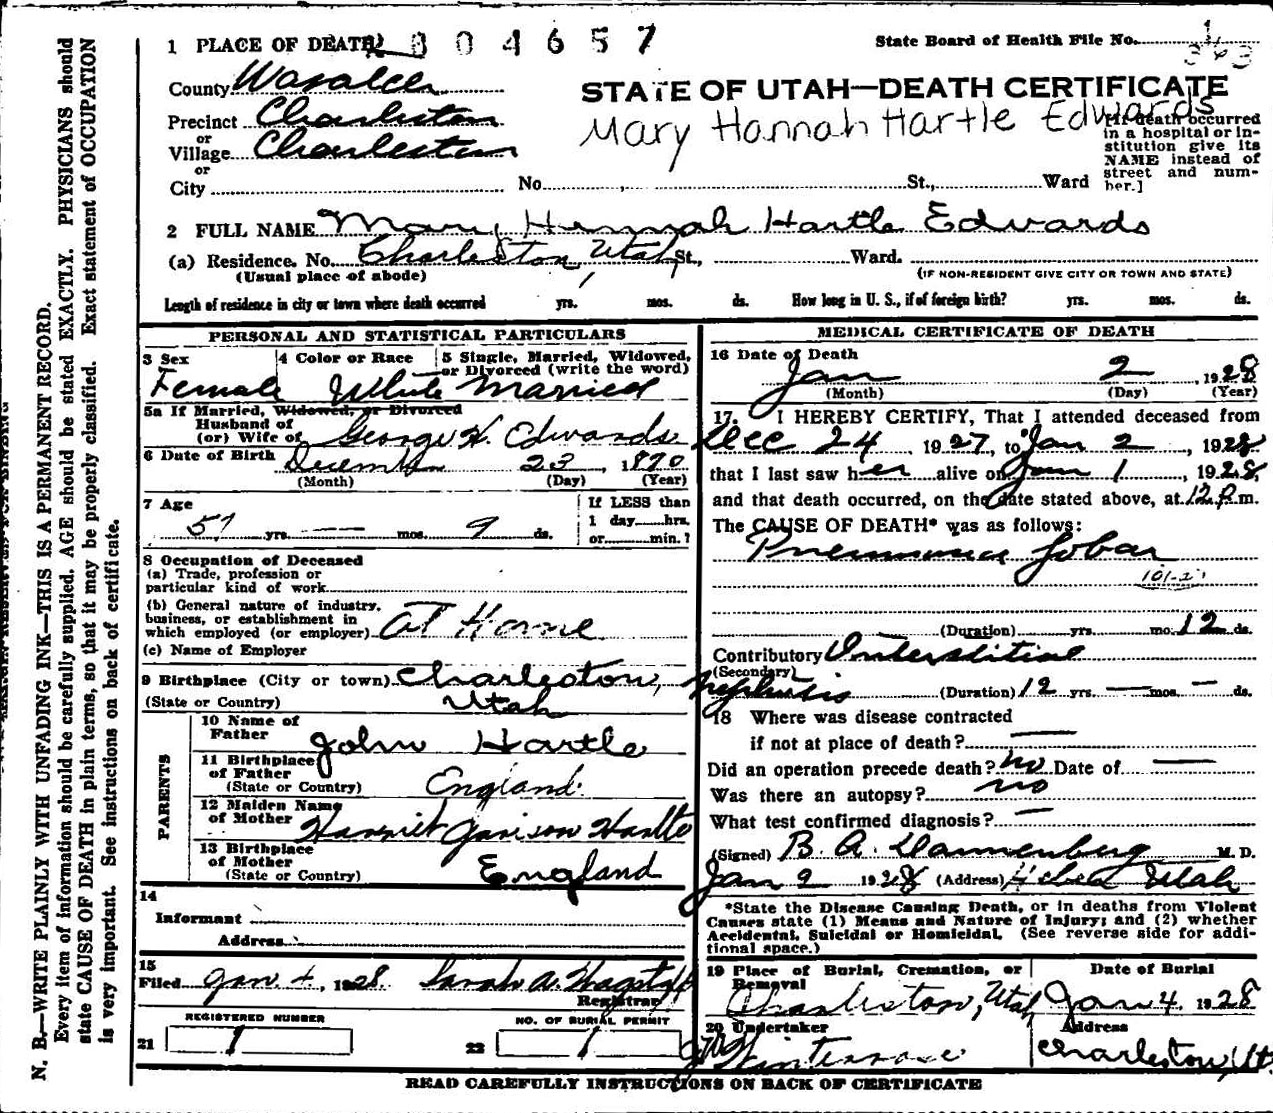 1 PLACE OF DEATH 304657
State Board of Health File No. 1/363
County Wasatch
STATE OF UTAH—DEATH CERTIFICATE
Mary Hannah Hartle Edwards
Precinct Charleston
or
Village Charleston
or
City No. , St., Ward
[If death occurred
in a hospital or in-
stitution give its
NAME instead of
street and num-
ber.]
2 FULL NAME Mary Hannah Hartle Edwards
(a) Residence. No. Charleston, Utah, St., Ward.
(Usual place of abode) (IF NON-RESIDENT GIVE CITY OR TOWN AND STATE)
Length of residence in city or town where death occurred yrs. mos. ds. How long in U. S., if of foreign birth? yrs. mos. ds.
PERSONAL AND STATISTICAL PARTICULARS
3 Sex 4 Color or Race 5 Single, Married, Widowed,
or Divorced (write the word)
Female White Married
5a If Married, Widowed, or Divorced
Husband of
(or) Wife of George H. Edwards
6 Date of Birth December 23, 1870
(Month) (Day) (Year)
7 Age If LESS than
57 yrs. — mos. 9 ds. 1 day hrs.
or min.?
8 Occupation of Deceased
(a) Trade, profession or
particular kind of work
(b) General nature of industry,
business, or establishment in
which employed (or employer) At Home
(c) Name of Employer
9 Birthplace (City or town) Charleston,
(State or Country) Utah
PARENTS
10 Name of
Father John Hartle
11 Birthplace
of Father
(State or Country) England
12 Maiden Name
of Mother Harriet Hartle
13 Birthplace
of Mother
(State or Country) England
14
Informant
Address
15
Filed Jan 4, 1928 Sarah A. Wagstaff
Registrar
REGISTERED NUMBER NO. OF BURIAL PERMIT
21 1 22 1
MEDICAL CERTIFICATE OF DEATH
16 Date of Death
Jan 2, 1928
(Month) (Day) (Year)
17. I HEREBY CERTIFY, That I attended deceased from
Dec 24, 1927, to Jan 2, 1928
that I last saw her alive on Jan 1, 1928,
and that death occurred, on the date stated above, at 12 p.m.
The CAUSE OF DEATH* was as follows:
Pneumonia Lobar
101-2
(Duration) yrs. mo. 12 ds.
Contributory Interstitial
(Secondary)
Nephritis (Duration) 12 yrs. — mos. — ds.
18 Where was disease contracted
if not at place of death? —
Did an operation precede death? no Date of —
Was there an autopsy? no
What test confirmed diagnosis? —
(Signed) B. A. Dannenberg M. D.
Jan 2 1928 (Address) Heber Utah
*State the Disease Causing Death, or in deaths from Violent
Causes state (1) Means and Nature of Injury; and (2) whether
Accidental, Suicidal or Homicidal. (See reverse side for addi-
tional space.)
19 Place of Burial, Cremation, or Removal Date of Burial
Charleston, Utah Jan 4. 1928
20 Undertaker Address
Winterrose Charleston, Ut.
READ CAREFULLY INSTRUCTIONS ON BACK OF CERTIFICATE
N. B.—WRITE PLAINLY WITH UNFADING INK—THIS IS A PERMANENT RECORD.
Every item of information should be carefully supplied. AGE should be stated EXACTLY. PHYSICIANS should
state CAUSE OF DEATH in plain terms, so that it may be properly classified. Exact statement of OCCUPATION
is very important. See instructions on back of certificate.